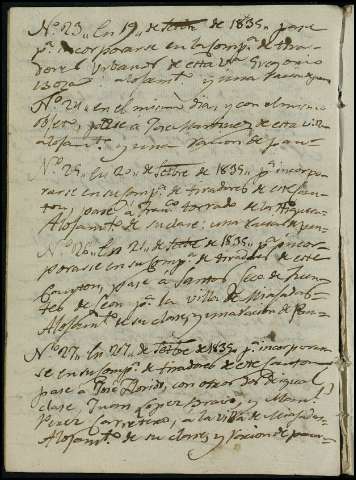 Nº 23,, En 19,, de Setbre de 1835,, pase
pª incorporarse en la Compª de tira-
dores Urbanos de esta Vª Gregorio
alojamto y una racion
Nº 24,, en el mismo dia, y con el mismo
objeto, pase a Jose Martinez de esta villa
alojamto y una racion de pan-
Nº 25,, En 20,, de Setbre de 1835,, pª incorpo-
rarse en su Compª de tiradores de este Can-
ton, pase a Franco Torrado de los
Alojamto de su clase; una racion de pan-
Nº 26,, En 21,, de Setbre de 1835,, pª incor-
porarse en su Compª de tiradores de este
Canton, pase a Santos de Fuen-
tes de Leon pª la villa de Miajadas-
Alojamto de su clase, y una racion de Pan-
Nº 27,, En 27,, de Setbre de 1835,, pª incorporar-
se en su Compª de tiradores de este Canton
pase a José Florido, con otros dos de igual
clase, Juan Lopez Bravo, y Manl
Perez Carretero, a la villa de Miajadas-
Alojamto de su clase, y racion de pan-